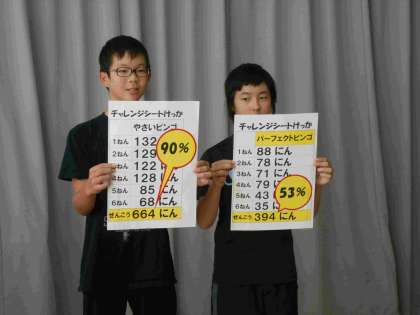 チャレンジシートけっか
やさいビンゴ
1ねん 132
2ねん 129
3ねん 122 にん
4ねん 128 にん
5ねん 85 にん
6ねん 68 にん
ぜんこう 664 にん
90%
チャレンジシートけっか
パーフェクトビンゴ
1ねん 88 にん
2ねん 78 にん
3ねん 71 にん
4ねん 79 にん
5ねん 43
6ねん 35 にん
ぜんこう 394 にん
53%